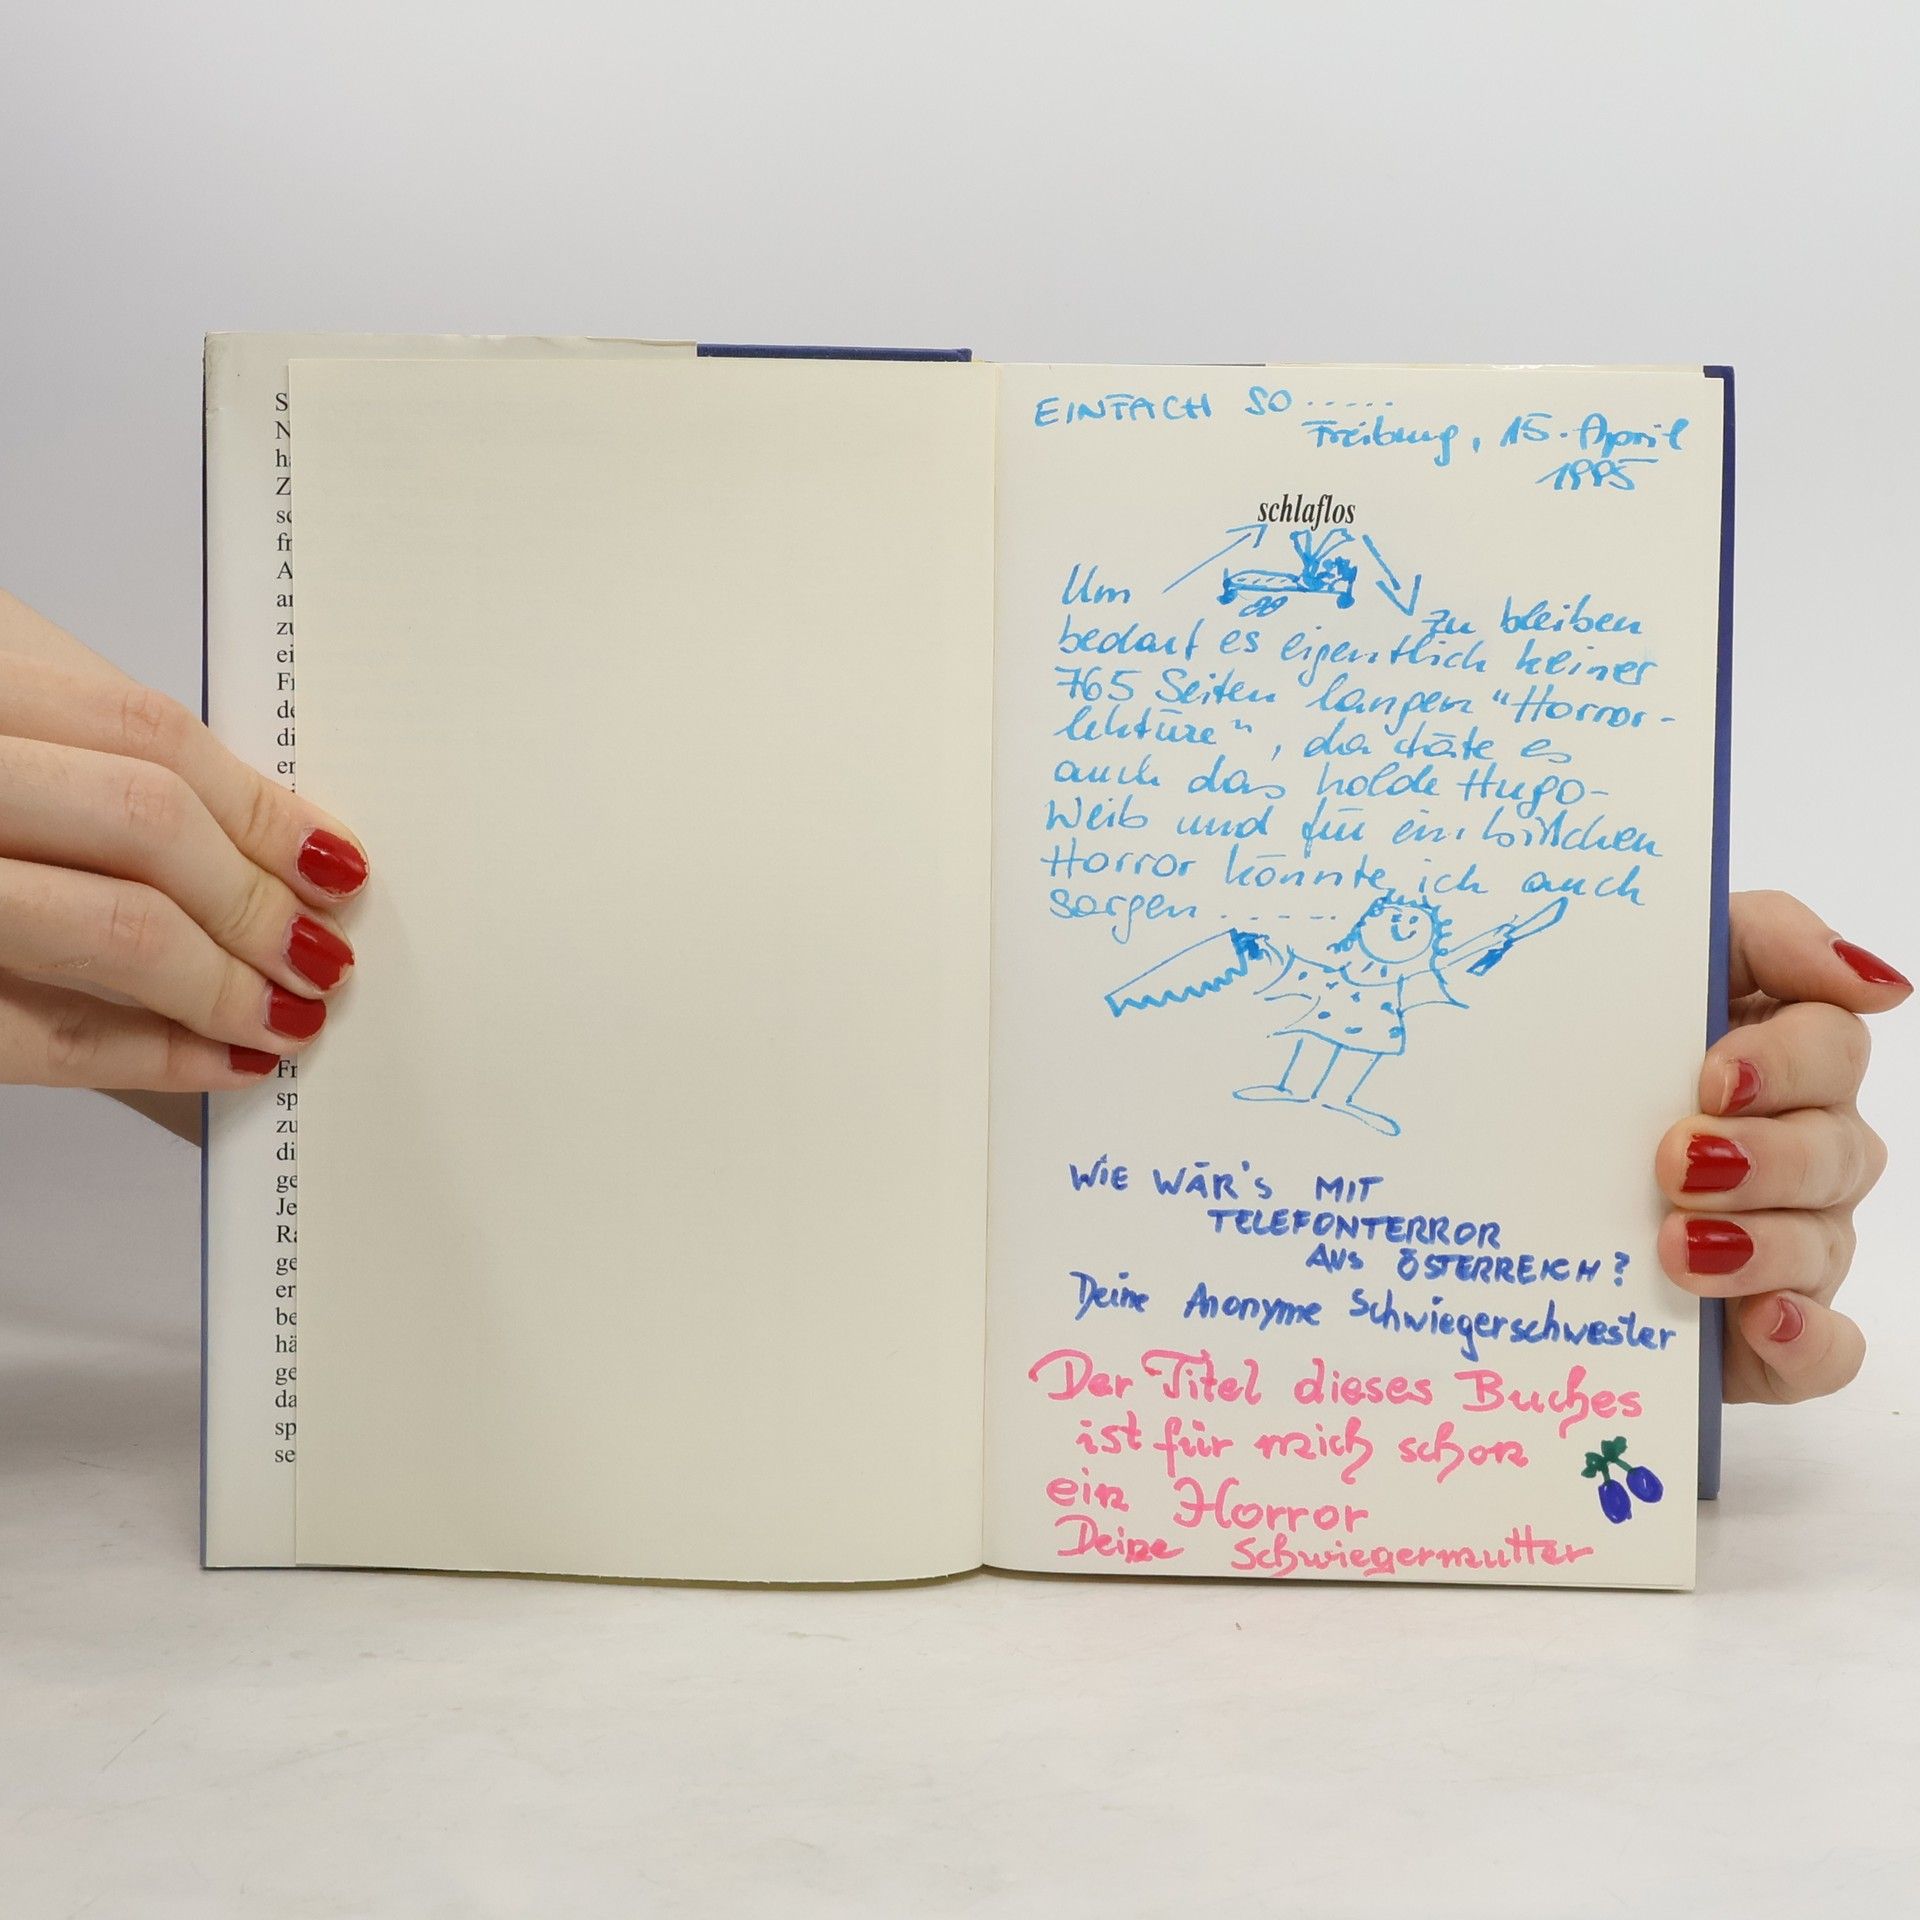 S
N
ha
Z
sc
fr
A
an
zu
ei
Fr
de
di
er
Fr
sp
zu
di
ge
Je
Ra
ge
er
be
hä
ge
da
sp
se
EINFACH SO .....
Freiburg, 15. April
1995
schlaflos
Um
zu bleiben
bedarf es eigentlich keiner
765 Seiten langen "Horror-
lektüre", da täte es
auch das holde Hugo-
Weib und für ein bißchen
Horror könnte ich auch
sorgen ......
WIE WÄR'S MIT
TELEFONTERROR
AUS ÖSTERREICH?
Deine Anonyme Schwiegerschwester
Der Titel dieses Buches
ist für mich schon
ein Horror
Deine Schwiegermutter